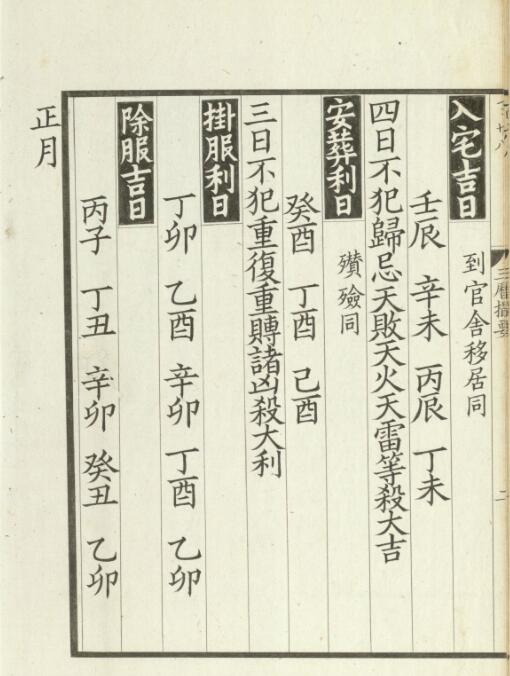 三曆撮要
二
入宅吉日 到官舍移居同
壬辰 辛未 丙辰 丁未
四日不犯歸忌天敗天火天雷等殺大吉
安葬利日 殯殮同
癸酉 丁酉 己酉
三日不犯重復重賻諸凶殺大利
掛服利日
丁卯 乙酉 辛卯 丁酉 乙卯
除服吉日
丙子 丁丑 辛卯 癸丑 乙卯
正月